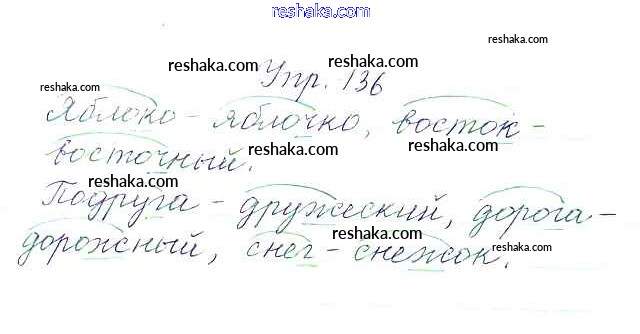 reshaka.com
reshaka.com
reshaka.com
Упр. 136
reshaka.com
reshaka.com
reshaka.com
Яблоко - яблочко, восток -
восточный.
reshaka.com
reshaka.com
reshaka.com
Подруга - дружеский, дорога -
reshaka.com
дорожный, снег - снежок.
reshaka.com
reshaka.com